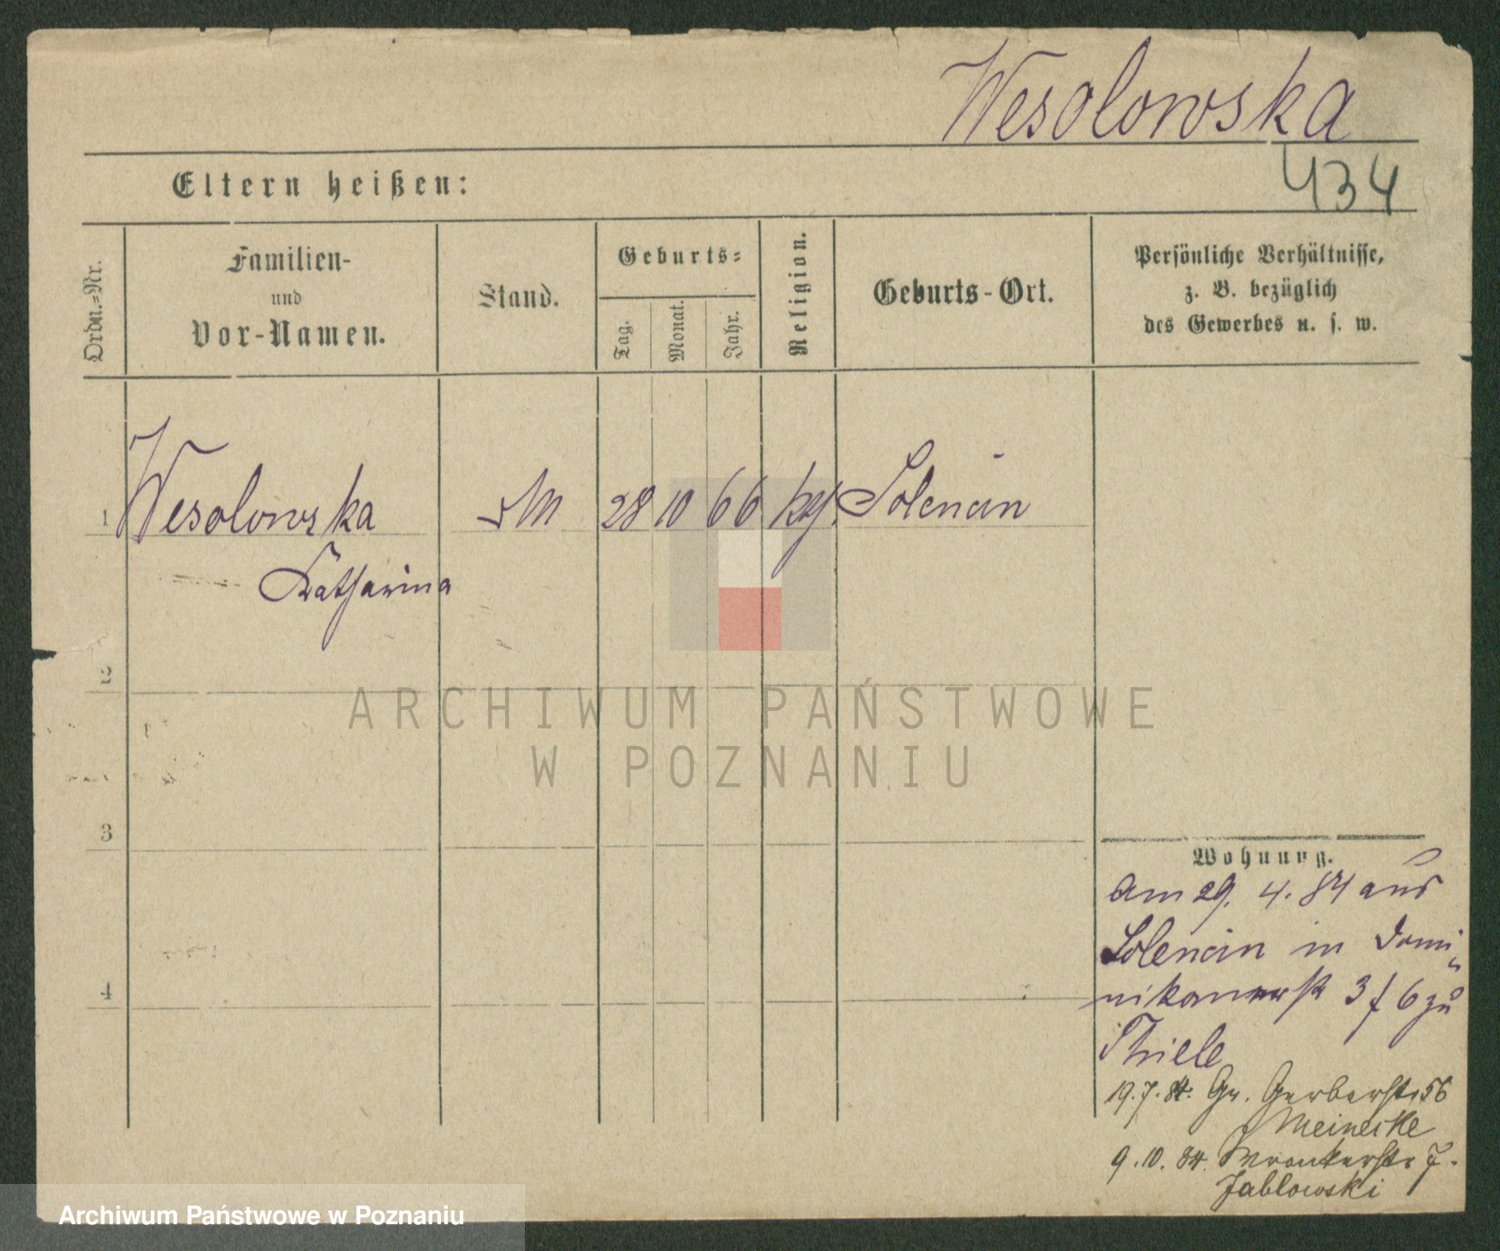 Wesolowska
434
Eltern heißen:
Ordn.-Nr.
Familien-
und
Vor-Namen.
Stand.
Geburts-
Tag.
Monat.
Jahr.
Religion.
Geburts-Ort.
Persönliche Verhältnisse,
z. B. bezüglich
des Gewerbes u. s. w.
1 Wesolowska 28 10 66 Solencin
Katharina
2
ARCHIWUM PAŃSTWOWE
W POZNANIU
3
Wohnung.
am 29. 4. 84 aus
Solencin in Domi
nikanerstr 3 f 6 zu
Thiele
19.7.84. Gr. Gerberstr 56
Meinecke
4
9.10.84. Wronkerstr 7.
Jablowski
Archiwum Państwowe w Poznaniu